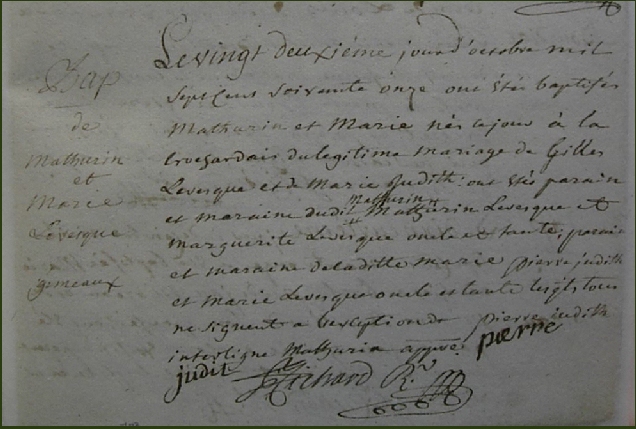 Bap
de
Mathurin
et
Marie
Levesque
jumeaux
Le vingt deuxiéme jour d'octobre mil
sept cens soixante onze ont étés baptisés
Mathurin et Marie nés ce jour à la
du legitime mariage de Gilles
Levesque et de Marie Judith: ont étés parain
et maraine dudit Mathurin Mathurin Levesque et
marguerite Levesque oncle et tante; parain
et maraine de laditte marie pierre judith
et marie Levesque oncle et tante lesqls tous
ne signent a l'exception de pierre judith
interligne Mathurin approuvé
judit pierre
Richard Rr